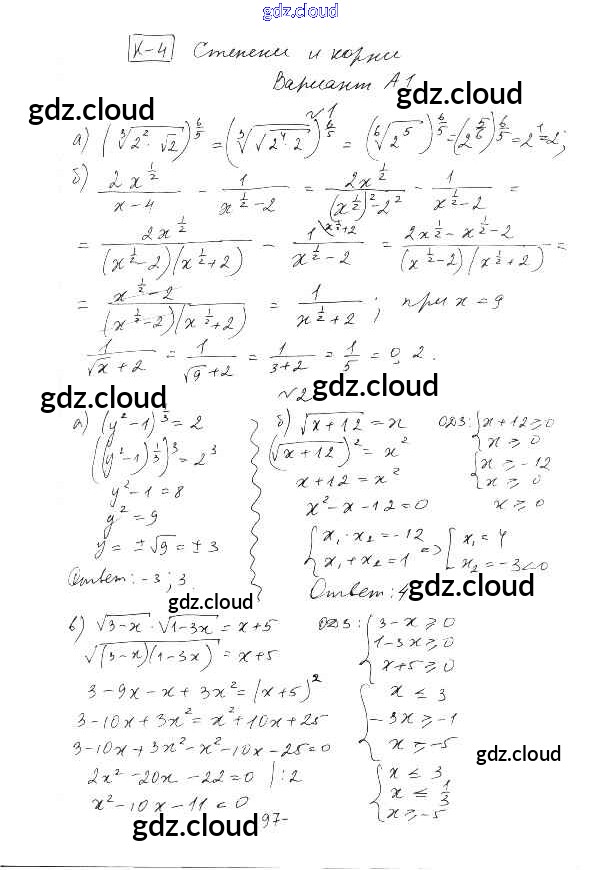 gdz.cloud
К-4 Степени и корни
Вариант А1
gdz.cloud gdz.cloud
№1
а) (∛(2²·√2))^(6/5) = (∛(√(2⁴·2)))^(6/5) = (⁶√(2⁵))^(6/5) = (2^(5/6))^(6/5) = 2¹ = 2;
б) 2x^(1/2)/(x-4) - 1/(x^(1/2)-2) = 2x^(1/2)/((x^(1/2))²-2²) - 1/(x^(1/2)-2) =
= 2x^(1/2)/((x^(1/2)-2)(x^(1/2)+2)) - 1\x^(1/2)+2/(x^(1/2)-2) = (2x^(1/2)-x^(1/2)-2)/((x^(1/2)-2)(x^(1/2)+2)) =
= (x^(1/2)-2)/((x^(1/2)-2)(x^(1/2)+2)) = 1/(x^(1/2)+2); при x = 9
1/(√x+2) = 1/(√9+2) = 1/(3+2) = 1/5 = 0,2.
gdz.cloud gdz.cloud
№2
а) (y²-1)^(1/3) = 2
((y²-1)^(1/3))³ = 2³
y²-1 = 8
y² = 9
y = ±√9 = ±3
Ответ: -3; 3.
б) √(x+12) = x
(√(x+12))² = x²
x+12 = x²
x²-x-12 = 0
{x₁·x₂ = -12
x₁+x₂ = 1 => [x₁ = 4
x₂ = -3<0
Ответ: 4
ОДЗ: {x+12 ≥ 0
x ≥ 0
{x ≥ -12
x ≥ 0
x ≥ 0
gdz.cloud gdz.cloud
в) √(3-x)·√(1-3x) = x+5
√((3-x)(1-3x)) = x+5
3-9x-x+3x² = (x+5)²
3-10x+3x² = x²+10x+25
3-10x+3x²-x²-10x-25=0
2x²-20x-22=0 |:2
x²-10x-11=0
ОДЗ: {3-x ≥ 0
1-3x ≥ 0
x+5 ≥ 0
{x ≤ 3
-3x ≥ -1
x ≥ -5
gdz.cloud
{x ≤ 3
x ≤ 1/3
x ≥ -5
gdz.cloud
97-